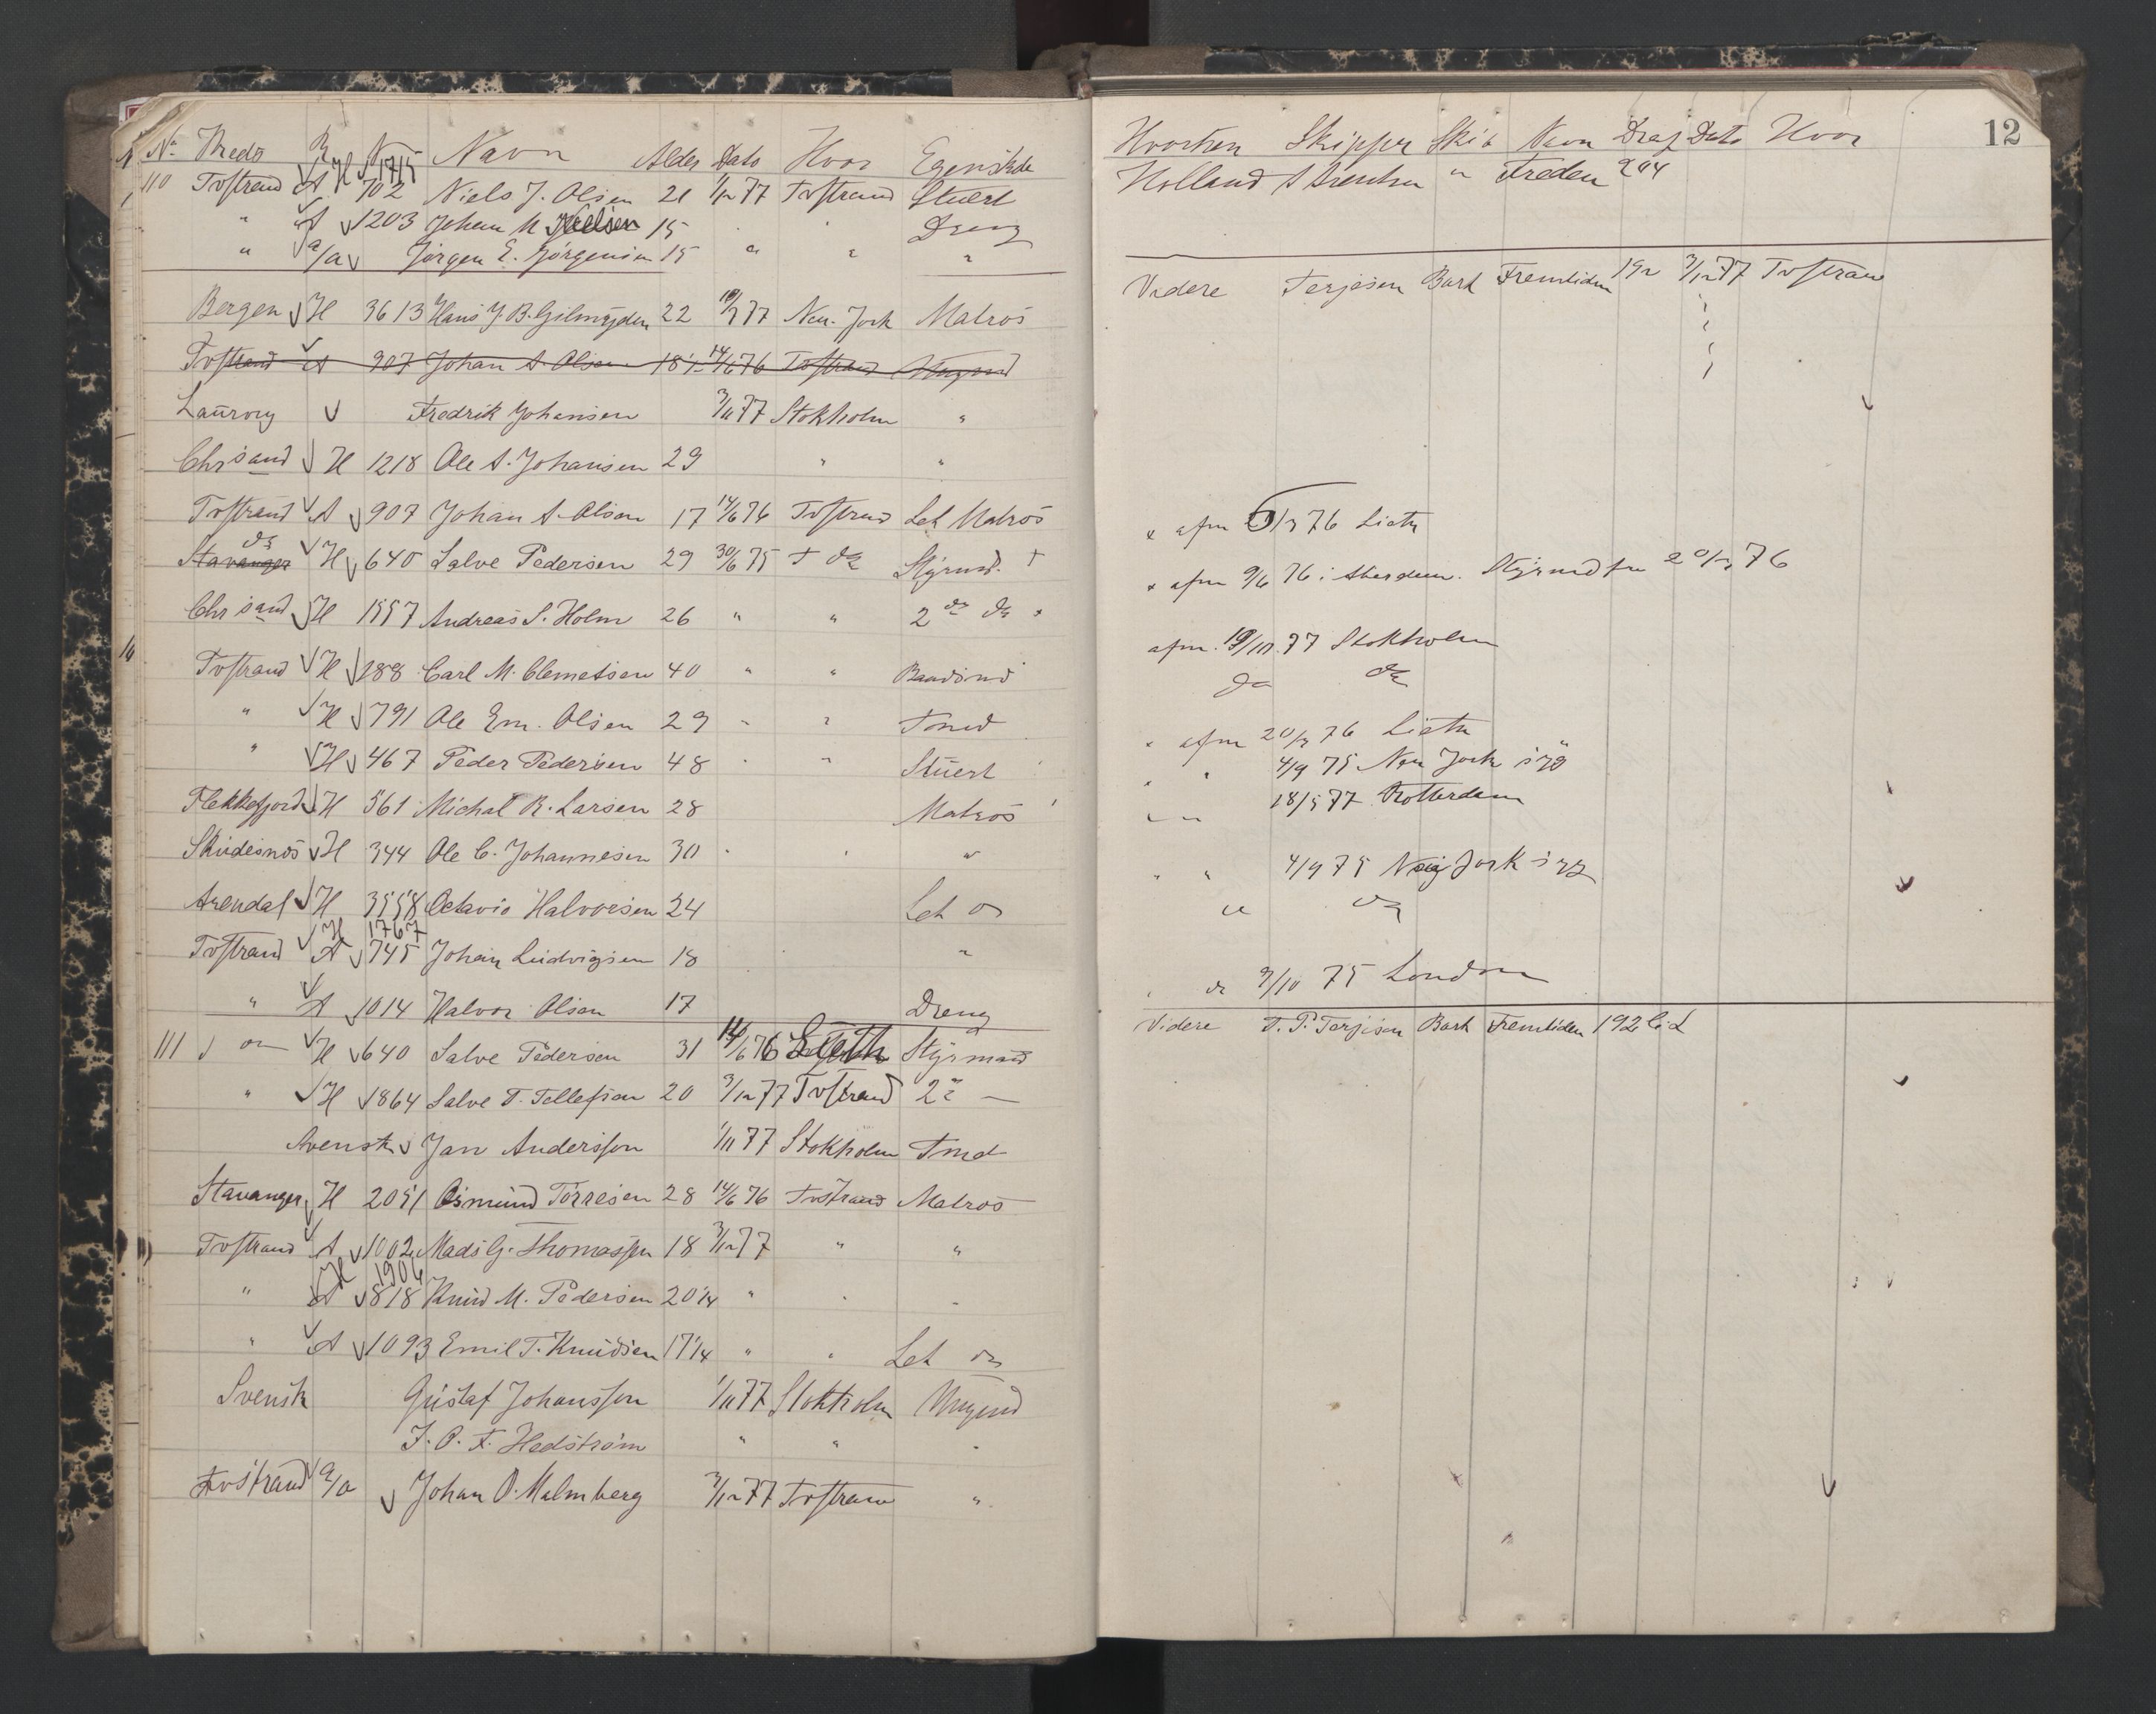 Nº Kreds R N Navn Alder Dato Hvor Egenskab
H 1715
110 Tvstrand A 702 Niels J. Olsen 21 1/12 77 Tvstrand Stuert
" A 1203 Johan N Nielsen 15 Dreng
" a/a Jörgen E. Jörgensen 15 " " "
Bergen H 3613 Hans J. B. Gilmÿden 22 77 New-Jork Matros
Tvstrand A 907 Johan A. Olsen 18 14/6 76 Tvstrand
Laurvig Fredrik Johansen 3/11 77 Stokholm "
Chrisand H 1218 Ole A. Johansen 29 " "
Tvstrand A 907 Johan A. Olsen 17 14/6 76 Tvstrand Let Matros
do
Stavanger H 640 Salve Pedersen 29 30/6 75 + do Styrmd. +
Chrisand H 1557 Andreas S. Holm 26 " " 2 do do
Tvstrand H 188 Carl M. Clemetsen 40 " " Baadsmd
" H 791 Ole Em. Olsen 29 " " Tmd
" H 467 Peder Pedersen 48 " " Stuert
Flekkefjord H 561 Michal R. Larsen 28 Matros
Skudesnös H 344 Ole C. Johannesen 30 "
Arendal H 3558 Octavio Halvorsen 24 Let do
H 1767
Tvstrand A 745 Johan Ludvigsen 18 "
" A 1014 Halvor Olsen 17 Dreng
111 do H 640 Salve Pedersen 31 14/6 76 Lieth Styrmand
" H 1864 Salve T. Tellefsen 20 3/12 77 Tvstrand 2 —
Svensk Jan Andersson 1/11 77 Stokholm Tmd
Stavanger H 2051 Osmund Torresen 28 14/6 76 Tvstrand Matros
Tvstrand A 1002 Mads G. Thomassen 18 3/12 77 " "
H 1906
" A 818 Knud M. Pedersen 20 1/4 "
" A 1093 Emil T. Knudsen 17 1/4 " " Let do
Svensk Gustaf Johansson 1/11 77 Stokholm Ungmd
J. O. F. Hedström " " "
Tvstrand a/a Johan O. Malmberg 3/12 77 Tvstrand "
12
Hvorhen Skipper Skib Navn Dræg Dato Hvor
Holland " Freden 204
Videre Terjesen Bark Fremtiden 192 3/12 77 Tvstrand
x afm 76 Lieth
x afm 9/6 76 i Aberdeen. Styrmd fra 76
afm. 19/10 77 Stokholm
do do
" afm 76 Lieth
" " 4/9 75 New Jork
" " 18/5 77 Rotterdam
" " 4/9 75 Jork
" do
" do 9/10 75 London
Videre T. P. Terjesen Bark Fremtiden 192 C. L